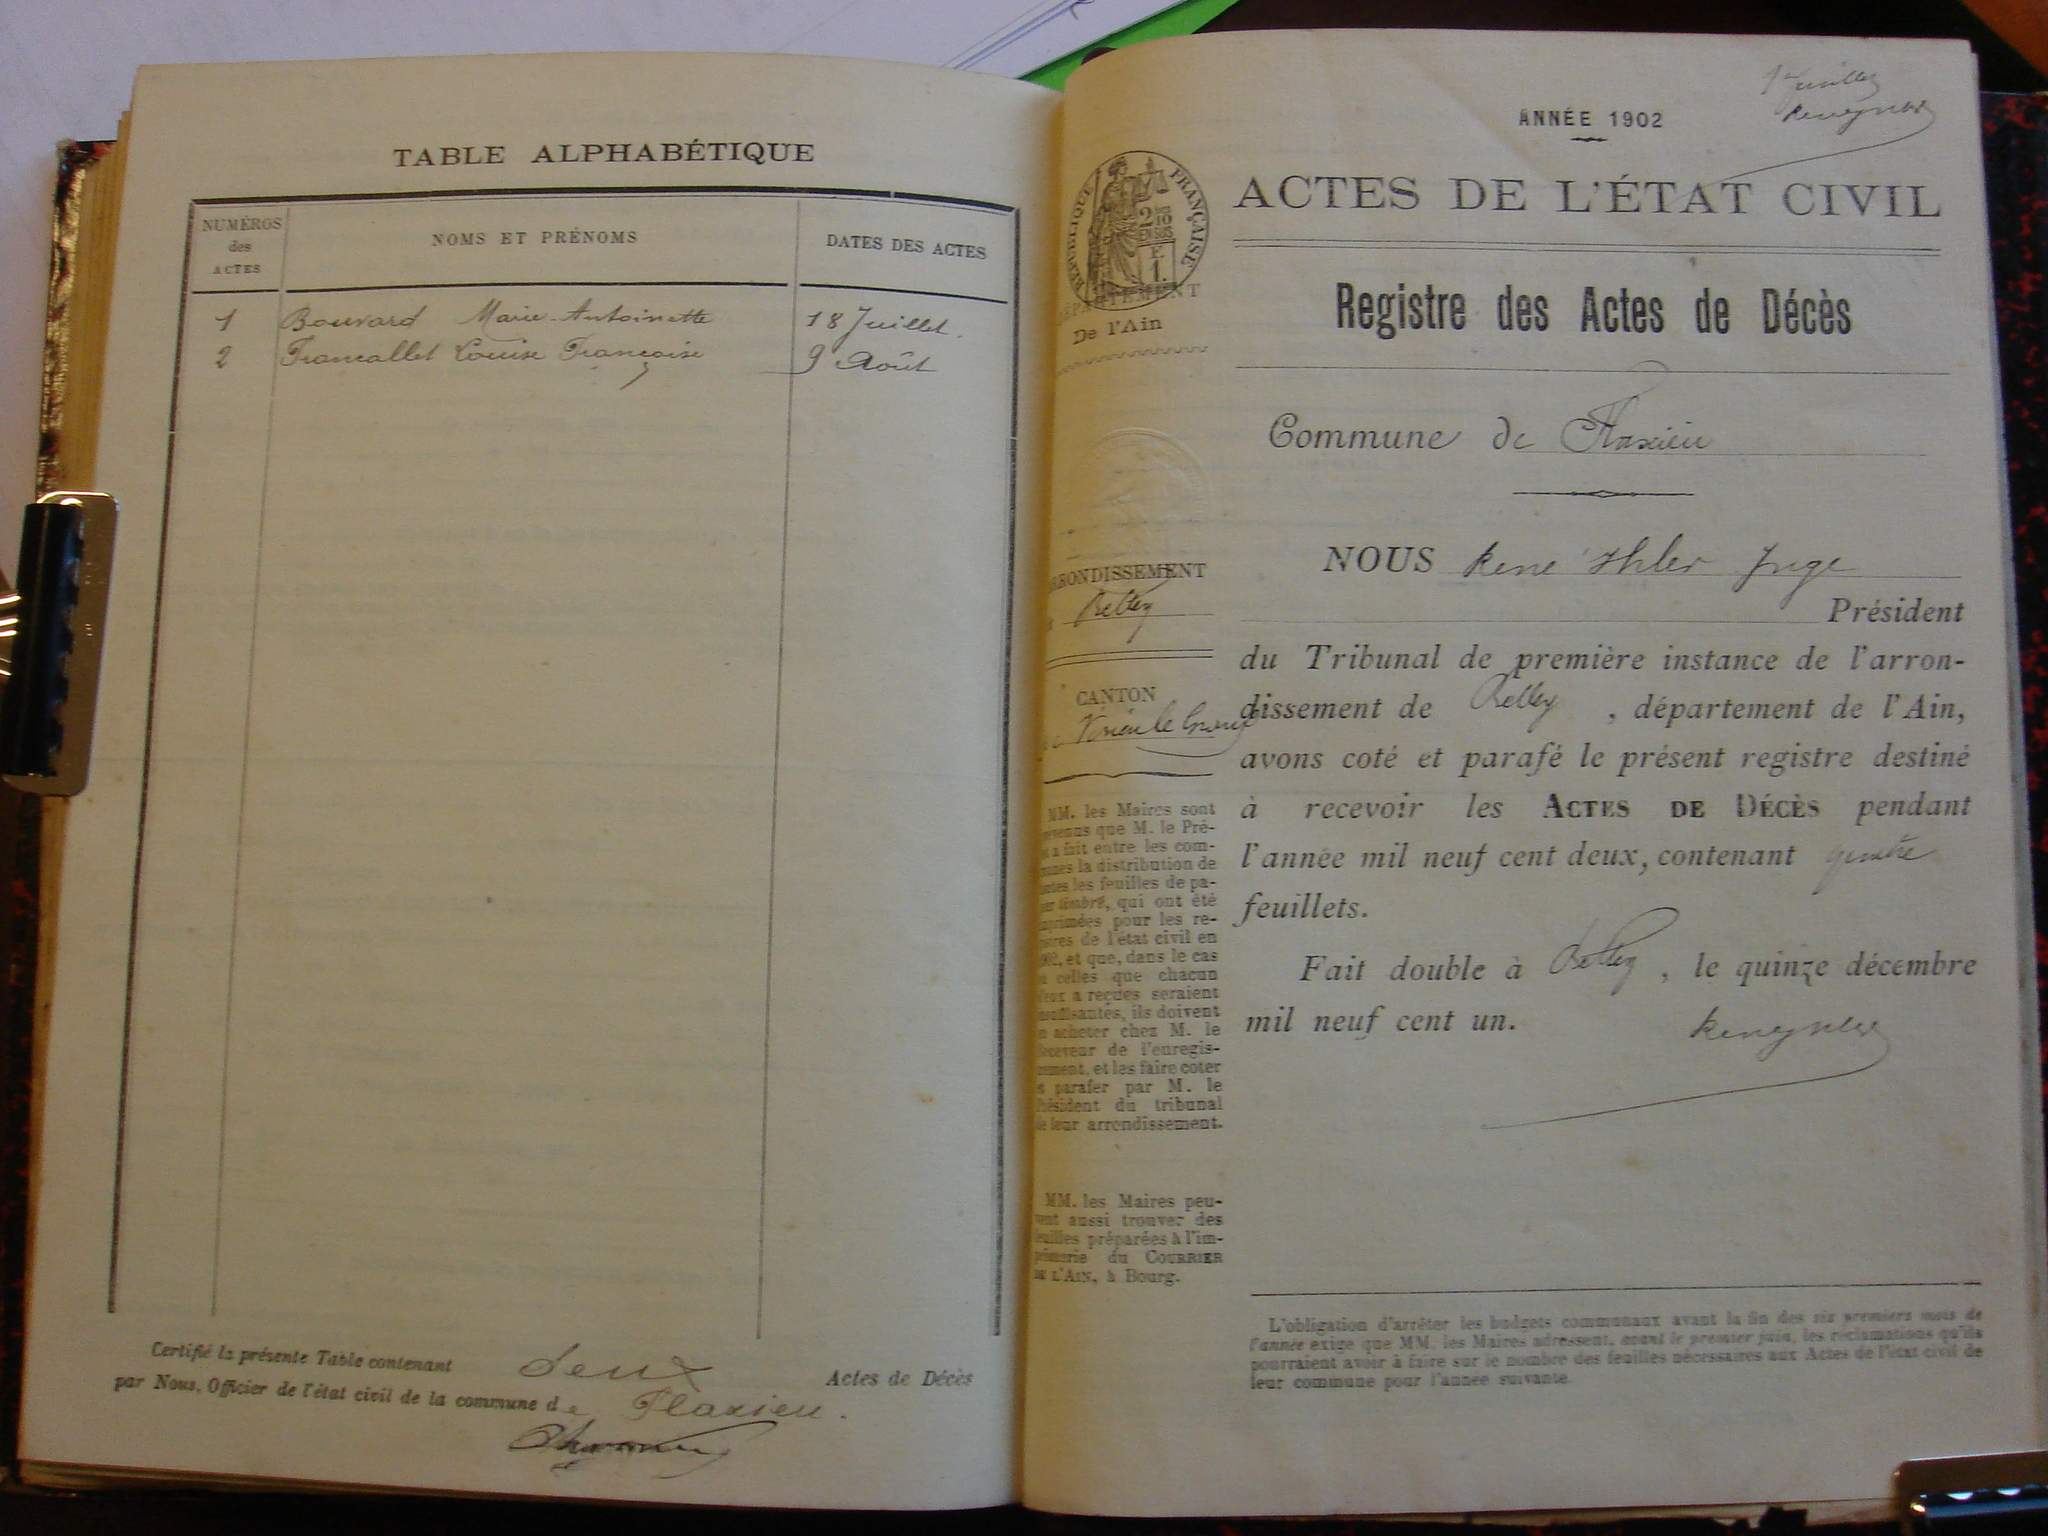 TABLE ALPHABÉTIQUE
NUMÉROS
des
ACTES
NOMS ET PRÉNOMS
DATES DES ACTES
1 Bouvard Marie-Antoinette 18 Juillet.
2 Francallet Louise Françoise 9 Août
Certifié la présente Table contenant deux Actes de Décès
par Nous, Officier de l'état civil de la commune de Flaxieu.
ANNÉE 1902
RÉPUBLIQUE FRANÇAISE
2 DES 10
EN SUS
E
1.
DÉPARTEMENT
De l'Ain
ARRONDISSEMENT
Belley
CANTON
Virieu le Grand
MM. les Maires sont
prévenus que M. le Pré-
fet a fait entre les com-
munes la distribution de
toutes les feuilles de pa-
pier timbré, qui ont été
imprimées pour les re-
gistres de l'état civil en
1902, et que, dans le cas
où celles que chacun
d'eux a reçues seraient
insuffisantes, ils doivent
en acheter chez M. le
Receveur de l'enregis-
trement, et les faire coter
et parafer par M. le
Président du tribunal
de leur arrondissement.
MM. les Maires peu-
vent aussi trouver des
feuilles préparées à l'im-
primerie du COURRIER
DE L'AIN, à Bourg.
ACTES DE L'ÉTAT CIVIL
Registre des Actes de Décès
Commune de Flaxieu
NOUS René Ihler Juge
Président
du Tribunal de première instance de l'arron-
dissement de Belley, département de l'Ain,
avons coté et parafé le présent registre destiné
à recevoir les ACTES DE DÉCÈS pendant
l'année mil neuf cent deux, contenant
feuillets.
Fait double à Belley, le quinze décembre
mil neuf cent un.
L'obligation d'arrêter les budgets communaux avant la fin des six premiers mois de
l'année exige que MM. les Maires adressent, avant le premier juin, les réclamations qu'ils
pourraient avoir à faire sur le nombre des feuilles nécessaires aux Actes de l'état civil de
leur commune pour l'année suivante.